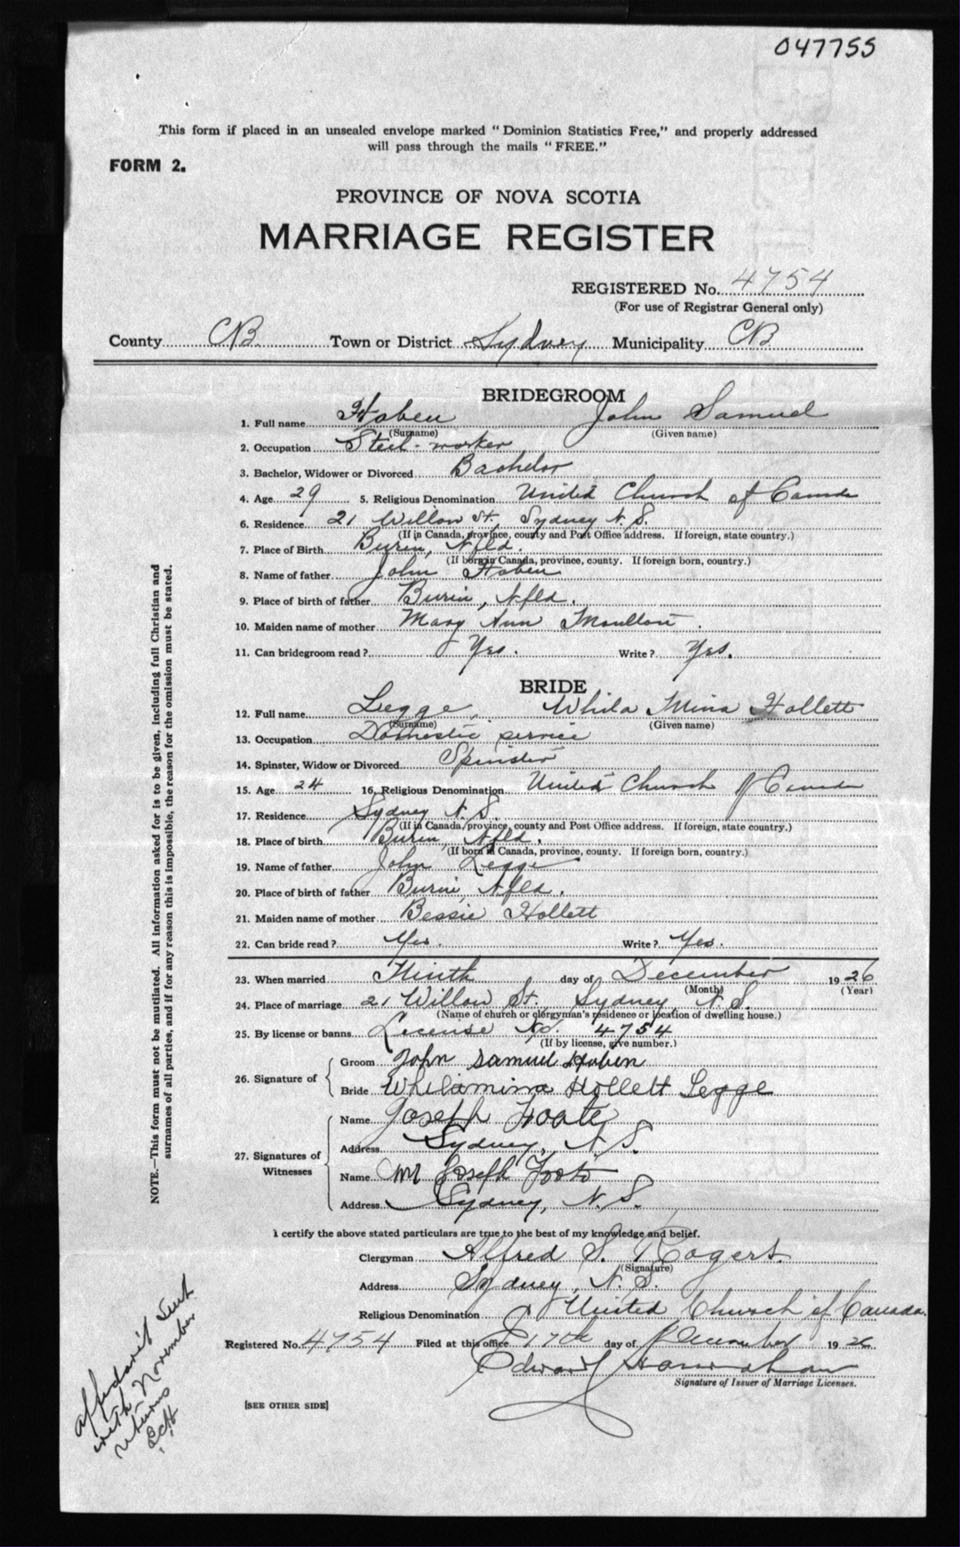 047755
This form if placed in an unsealed envelope marked "Dominion Statistics Free," and properly addressed
will pass through the mails "FREE."
FORM 2.
PROVINCE OF NOVA SCOTIA
MARRIAGE REGISTER
REGISTERED No. 4754
(For use of Registrar General only)
County CB Town or District Sydney Municipality CB
BRIDEGROOM
1. Full name Hoben John Samuel
(Surname) (Given name)
2. Occupation Steel-worker
3. Bachelor, Widower or Divorced Bachelor
4. Age 29 5. Religious Denomination United Church of Canada
6. Residence 21 Willow St. Sydney N.S.
(If in Canada, province, county and Post Office address. If foreign, state country.)
7. Place of Birth Burin, Nfld.
(If born in Canada, province, county. If foreign born, country.)
8. Name of father John Hoben
9. Place of birth of father Burin, Nfld.
10. Maiden name of mother Mary Ann Moulton.
11. Can bridegroom read? Yes. Write? Yes.
BRIDE
12. Full name Legge, Whila Mina Hollett
(Surname) (Given name)
13. Occupation Domestic service
14. Spinster, Widow or Divorced Spinster
15. Age 24 16. Religious Denomination United Church of Canada
17. Residence Sydney N.S.
(If in Canada, province, county and Post Office address. If foreign, state country.)
18. Place of birth Burin, Nfld.
(If born in Canada, province, county. If foreign born, country.)
19. Name of father John Legge
20. Place of birth of father Burin, Nfld.
21. Maiden name of mother Bessie Hollett
22. Can bride read? Yes. Write? Yes.
23. When married Ninth day of December 1926
(Month) (Year)
24. Place of marriage 21 Willow St. Sydney N.S.
(Name of church or clergyman's residence or location of dwelling house.)
25. By license or banns License No. 4754
(If by license, give number.)
26. Signature of
Groom John Samuel Hoben
Bride Whilamina Hollett Legge
27. Signatures of Witnesses
Name Joseph Foote
Address Sydney, N.S.
Name Joseph Foote
Address Sydney, N.S.
I certify the above stated particulars are true to the best of my knowledge and belief.
Clergyman Alfred S. Rogers.
(Signature)
Address Sydney, N.S.
Religious Denomination United Church of Canada.
Registered No. 4754 Filed at this office 17th day of December 1926
Edward
Signature of Issuer of Marriage Licenses.
[SEE OTHER SIDE]
NOTE.—This form must not be mutilated. All information asked for is to be given, including full Christian and
surnames of all parties, and if for any reason this is impossible, the reason for the omission must be stated.
affidavit sent
with November
returns